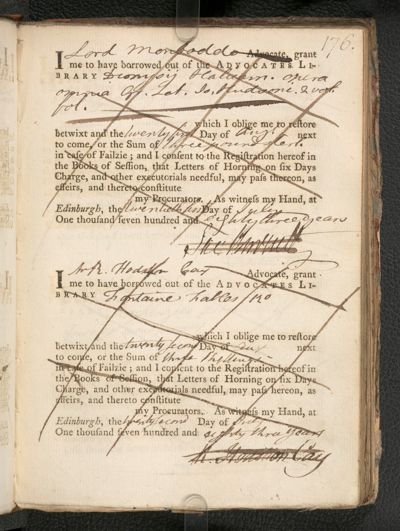 176.
I Lord Monboddo Advocate, grant
me to have borrowed out of the ADVOCATES LI-
BRARY Dionysij Halicarn. opera
omnia Gr. Lat. Jo. Hudsoni. 2 vol.
fol.
which I oblige me to reſtore
betwixt and the twenty first Day of next
to come, or the Sum of three pound ster.
in caſe of Failzie ; and I conſent to the Regiſtration hereof in
the Books of Seſſion, that Letters of Horning on ſix Days
Charge, and other executorials needful, may paſs thereon, as
effeirs, and thereto conſtitute
my Procurators. As witneſs my Hand, at
Edinburgh, the twenty first Day of July
One thouſand ſeven hundred and eighty three years
I Mr R. Hodson Cay Advocate, grant
me to have borrowed out of the ADVOCATES LI-
BRARY Fontaine Fables
which I oblige me to reſtore
betwixt and the twenty second Day of next
to come, or the Sum of three shillings
in caſe of Failzie ; and I conſent to the Regiſtration hereof in
the Books of Seſſion, that Letters of Horning on ſix Days
Charge, and other executorials needful, may paſs hereon, as
effeirs, and thereto conſtitute
my Procurators. As witneſs my Hand, at
Edinburgh, the twenty second Day of July
One thouſand ſeven hundred and eighty three years
R. Hodson Cay